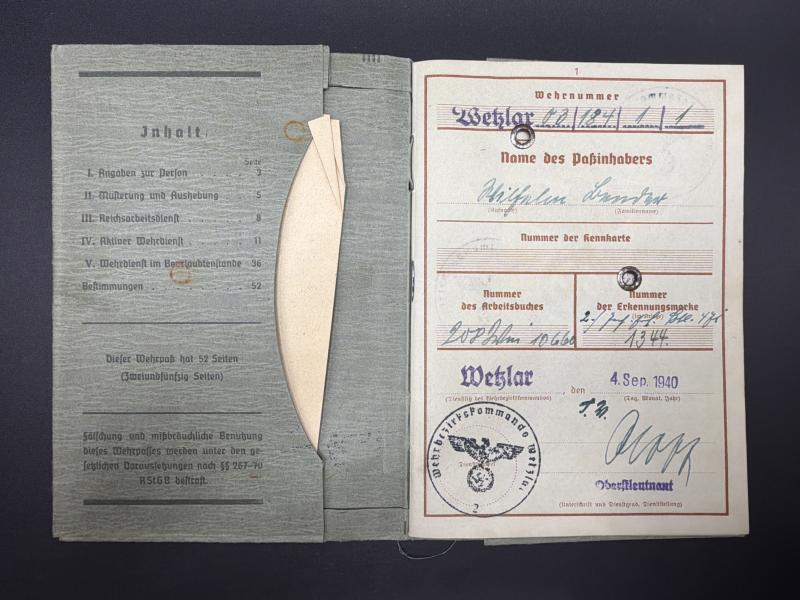 Inhalt
Seite
I. Angaben zur Person . . . . 3
II. Musterung und Aushebung . . . . 5
III. Reichsarbeitsdienst . . . . 8
IV. Aktiver Wehrdienst . . . . 11
V. Wehrdienst im Beurlaubtenstande 36
Bestimmungen . . . . 52
Dieser Wehrpaß hat 52 Seiten
(Zweiundfünfzig Seiten)
Fälschung und mißbräuchliche Benutzung
dieses Wehrpasses werden unter den ge-
setzlichen Voraussetzungen nach §§ 267-70
RStGB bestraft.
1
Wehrnummer
Wetzlar 00/184/1/1
Name des Paßinhabers
Wilhelm Bender
(Rufname) (Familienname)
Nummer der Kennkarte
Nummer
des Arbeitsbuches
Nummer
der Erkennungsmarke
208 10660
1344.
Wetzlar, den 4. Sep. 1940
(Dienstsitz des Wehrbezirkskommandos) (Tag, Monat, Jahr)
Wehrbezirkskommando Wetzlar
2
Oberstleutnant
(Unterschrift und Dienstgrad, Dienststellung)